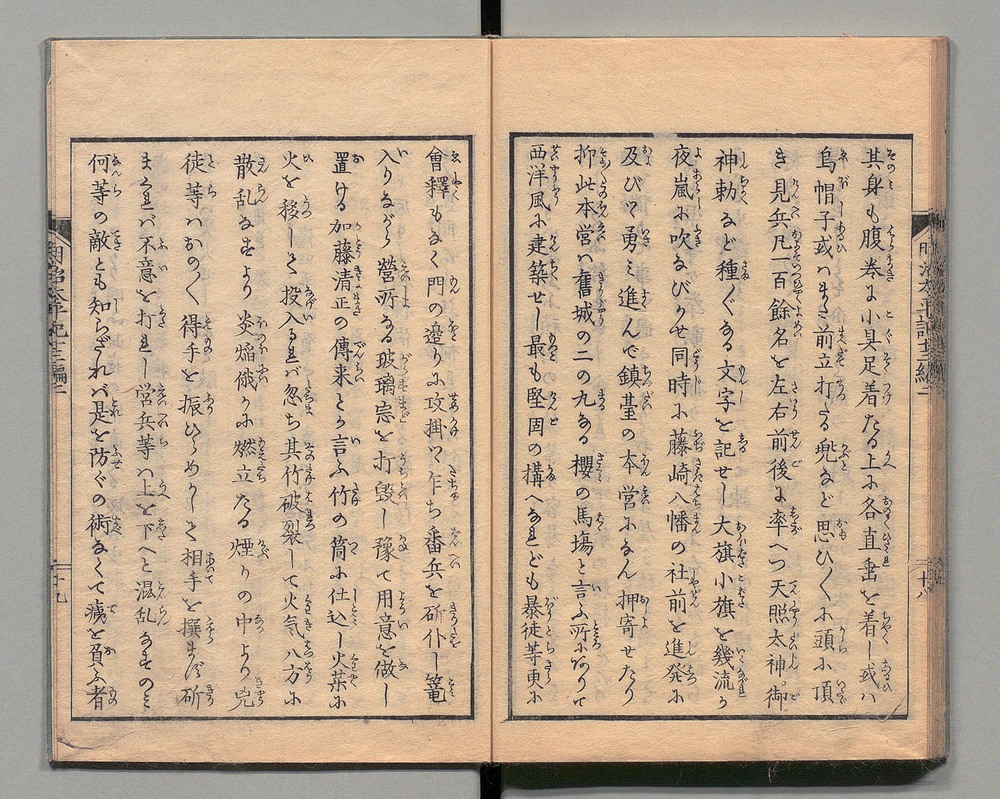 其身も腹巻に小具足着たる上に各直垂を着し或ハ
烏帽子或ハまた前立打たる兜など思ひ〱に頭に頂
き見兵凡一百餘名を左右前後に率へつ天照太神御
神勅など種〲なる文字を記せし大旗小旗を幾流か
夜嵐に吹なびかせ同時に藤崎八幡の社前を進発に
及びて勇み進んで鎮臺の本営になん押寄せたり
抑此本営ハ舊城の二の丸なる櫻の馬塲と言ふ所にありて
西洋風に建築せし最も堅固の構へなれども暴徒等更に
會釋もなく門の邉りに攻掛つて乍ち番兵を斫仆し篭
入りながら營所なる玻璃窓を打毀し豫て用意を做し
置ける加藤清正の傳来とか言ふ竹の筒に仕込し火薬に
火を移して投入るれバ忽ち其竹破裂して火氣八方に
散乱なすより炎熖熾かに燃立たる煙りの中より兇
徒等ハおの〱得手を振ひらめかして相手を撰まず斫
まくれバ不意を打れし営兵等ハ上を下へと混乱なすのミ
何等の敵とも知らざれバ是を防ぐの術なくて痍を負ふ者
明治太平記十三編二
十八
明治太平記十三編二
十九